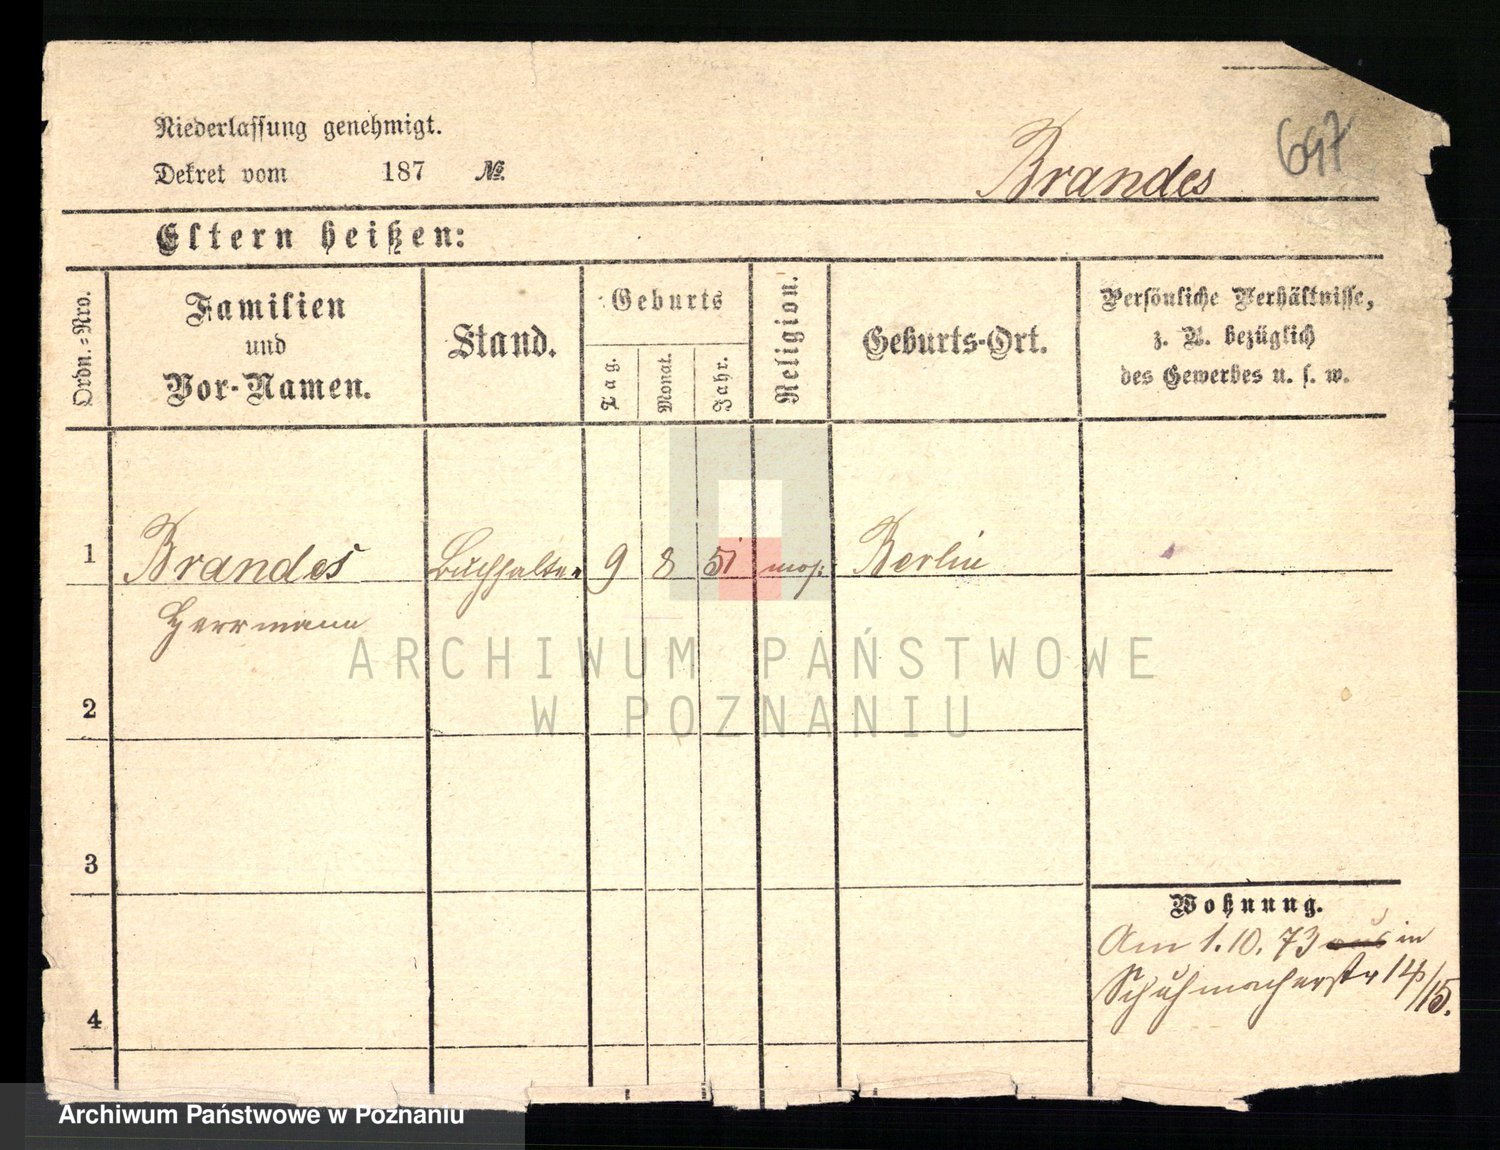 Niederlassung genehmigt.
Dekret vom 187 №.
Brandes
Eltern heißen:
Ordn.=Nro.
Familien
und
Vor-Namen.
Stand.
Geburts
Tag.
Monat.
Jahr.
Religion.
Geburts-Ort.
Persönliche Verhältnisse,
z. B. bezüglich
des Gewerbes u. s. w.
1 Brandes Buchhalter 9 8 51 mos: Berlin
Herrmann
2
3
4
Wohnung.
Am 1.10.73 in
Schuhmacherstr 14/15.
ARCHIWUM PAŃSTWOWE
W POZNANIU
Archiwum Państwowe w Poznaniu